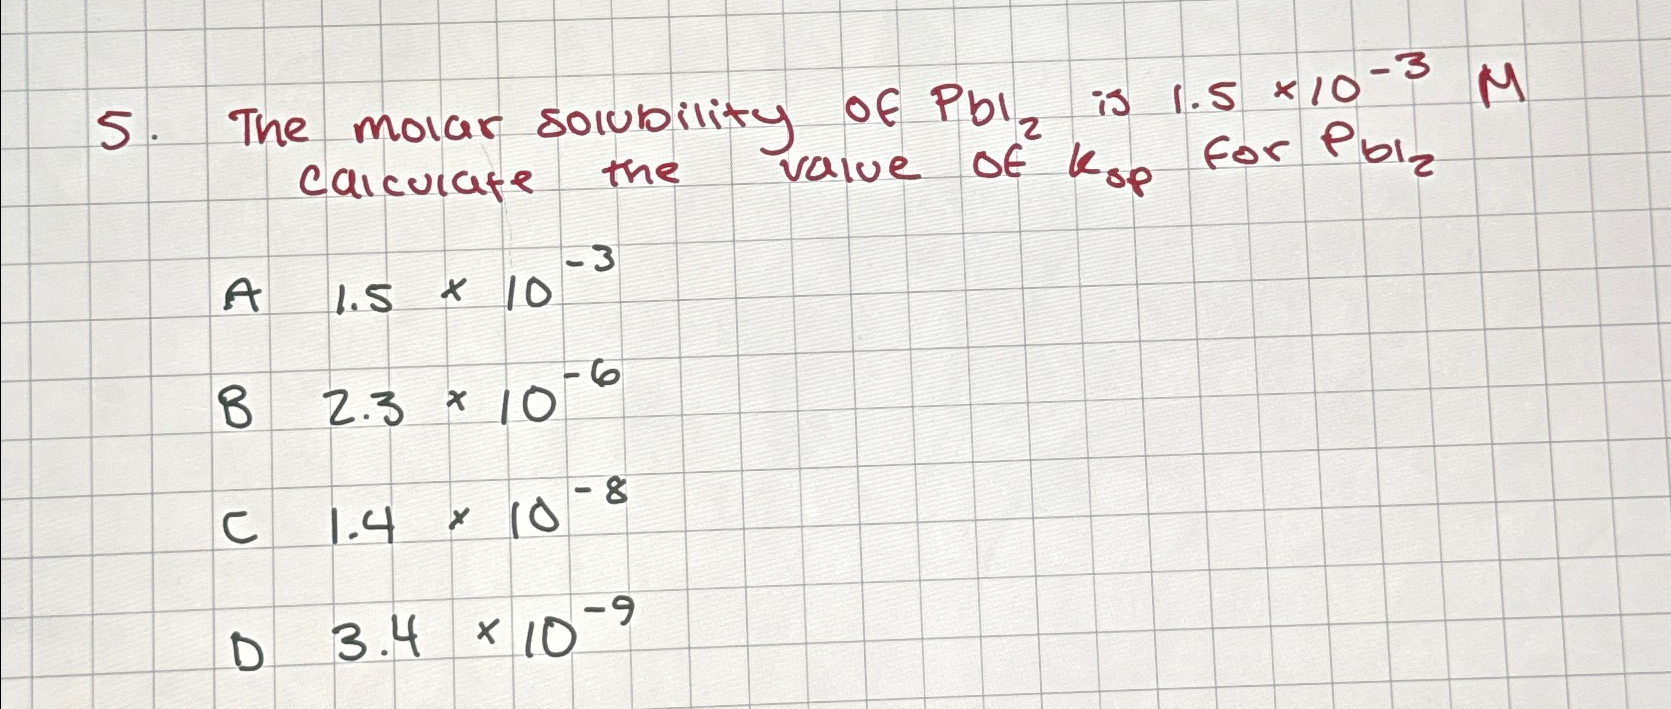 5. The molar solubility of PbI₂ is 1.5 × 10⁻³ M
calculate the value of ksp for PbI₂
A 1.5 × 10⁻³
B 2.3 × 10⁻⁶
C 1.4 × 10⁻⁸
D 3.4 × 10⁻⁹